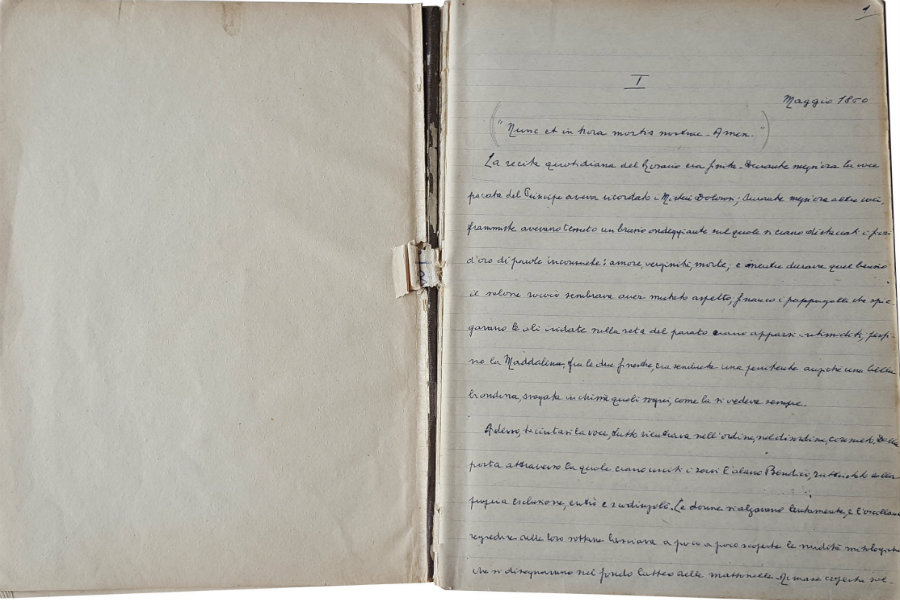 1
I
Maggio 1860
("Nunc et in hora mortis nostrae. Amen.")
La recita quotidiana del Rosario era finita. Durante mezz'ora la voce
pacata del Principe aveva ricordato i Misteri Dolorosi; durante mezz'ora altre voci,
frammiste avevano tessuto un brusio ondeggiante sul quale si erano distaccati i fiori
d'oro di parole inconsuete: amore, verginità, morte; e mentre durava quel brusio
il salone rococò sembrava aver mutato aspetto; financo i pappagalli che spie-
gavano le ali iridate sulla seta del parato erano apparsi intimiditi; perfi-
no la Maddalena, fra le due finestre, era sembrata una penitente anziché una bella
biondona, svagata in chissà quali sogni, come la si vedeva sempre.
Adesso, taciutasi la voce, tutto rientrava nell'ordine, nel disordine, consueto. Dalla
porta attraverso la quale erano usciti i servi l'alano Bendicò, rattristato della
propria esclusione, entrò e scodinzolò. Le donne si alzavano lentamente, e l'oscillante
regredire delle loro sottane lasciava a poco a poco scoperte le nudità mitologiche
che si disegnavano nel fondo latteo delle mattonelle. Rimase coperta sol-